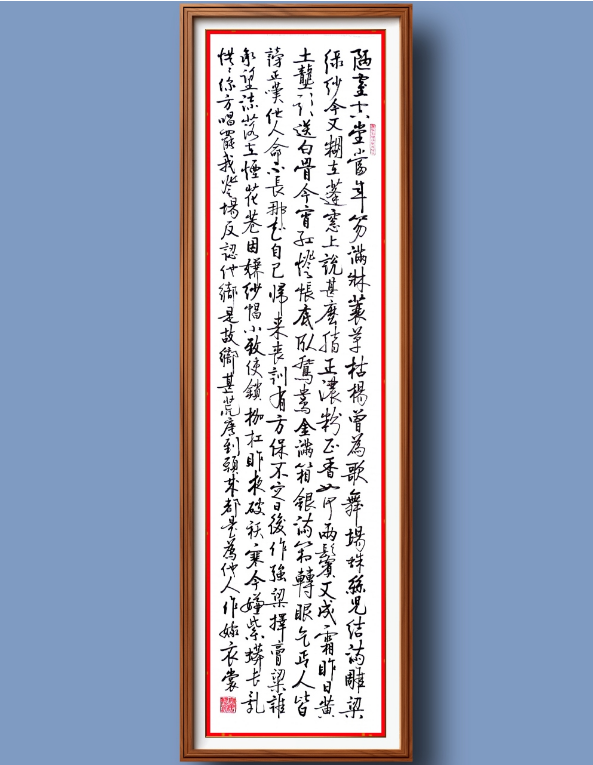 陋室空堂當年笏滿牀蓑草枯楊曾為歌舞場蛛絲兒結滿雕梁
綠紗今又糊在蓬窓上說甚麼脂正濃粉正香如何兩鬢又成霜昨日黃
土壟頭送白骨今宵紅燈帳底臥鴛鴦金滿箱銀滿箱轉眼乞丐人皆
謗正嘆他人命不長那知自己歸來喪訓有方保不定日後作強梁擇膏粱誰
承望流落在煙花巷因嫌紗帽小致使鎖枷扛昨夜破袄寒今嫌紫蟒長亂
烘烘你方唱罷我登場反認他鄉是故鄉甚荒唐到頭來都是為他人作嫁衣裳